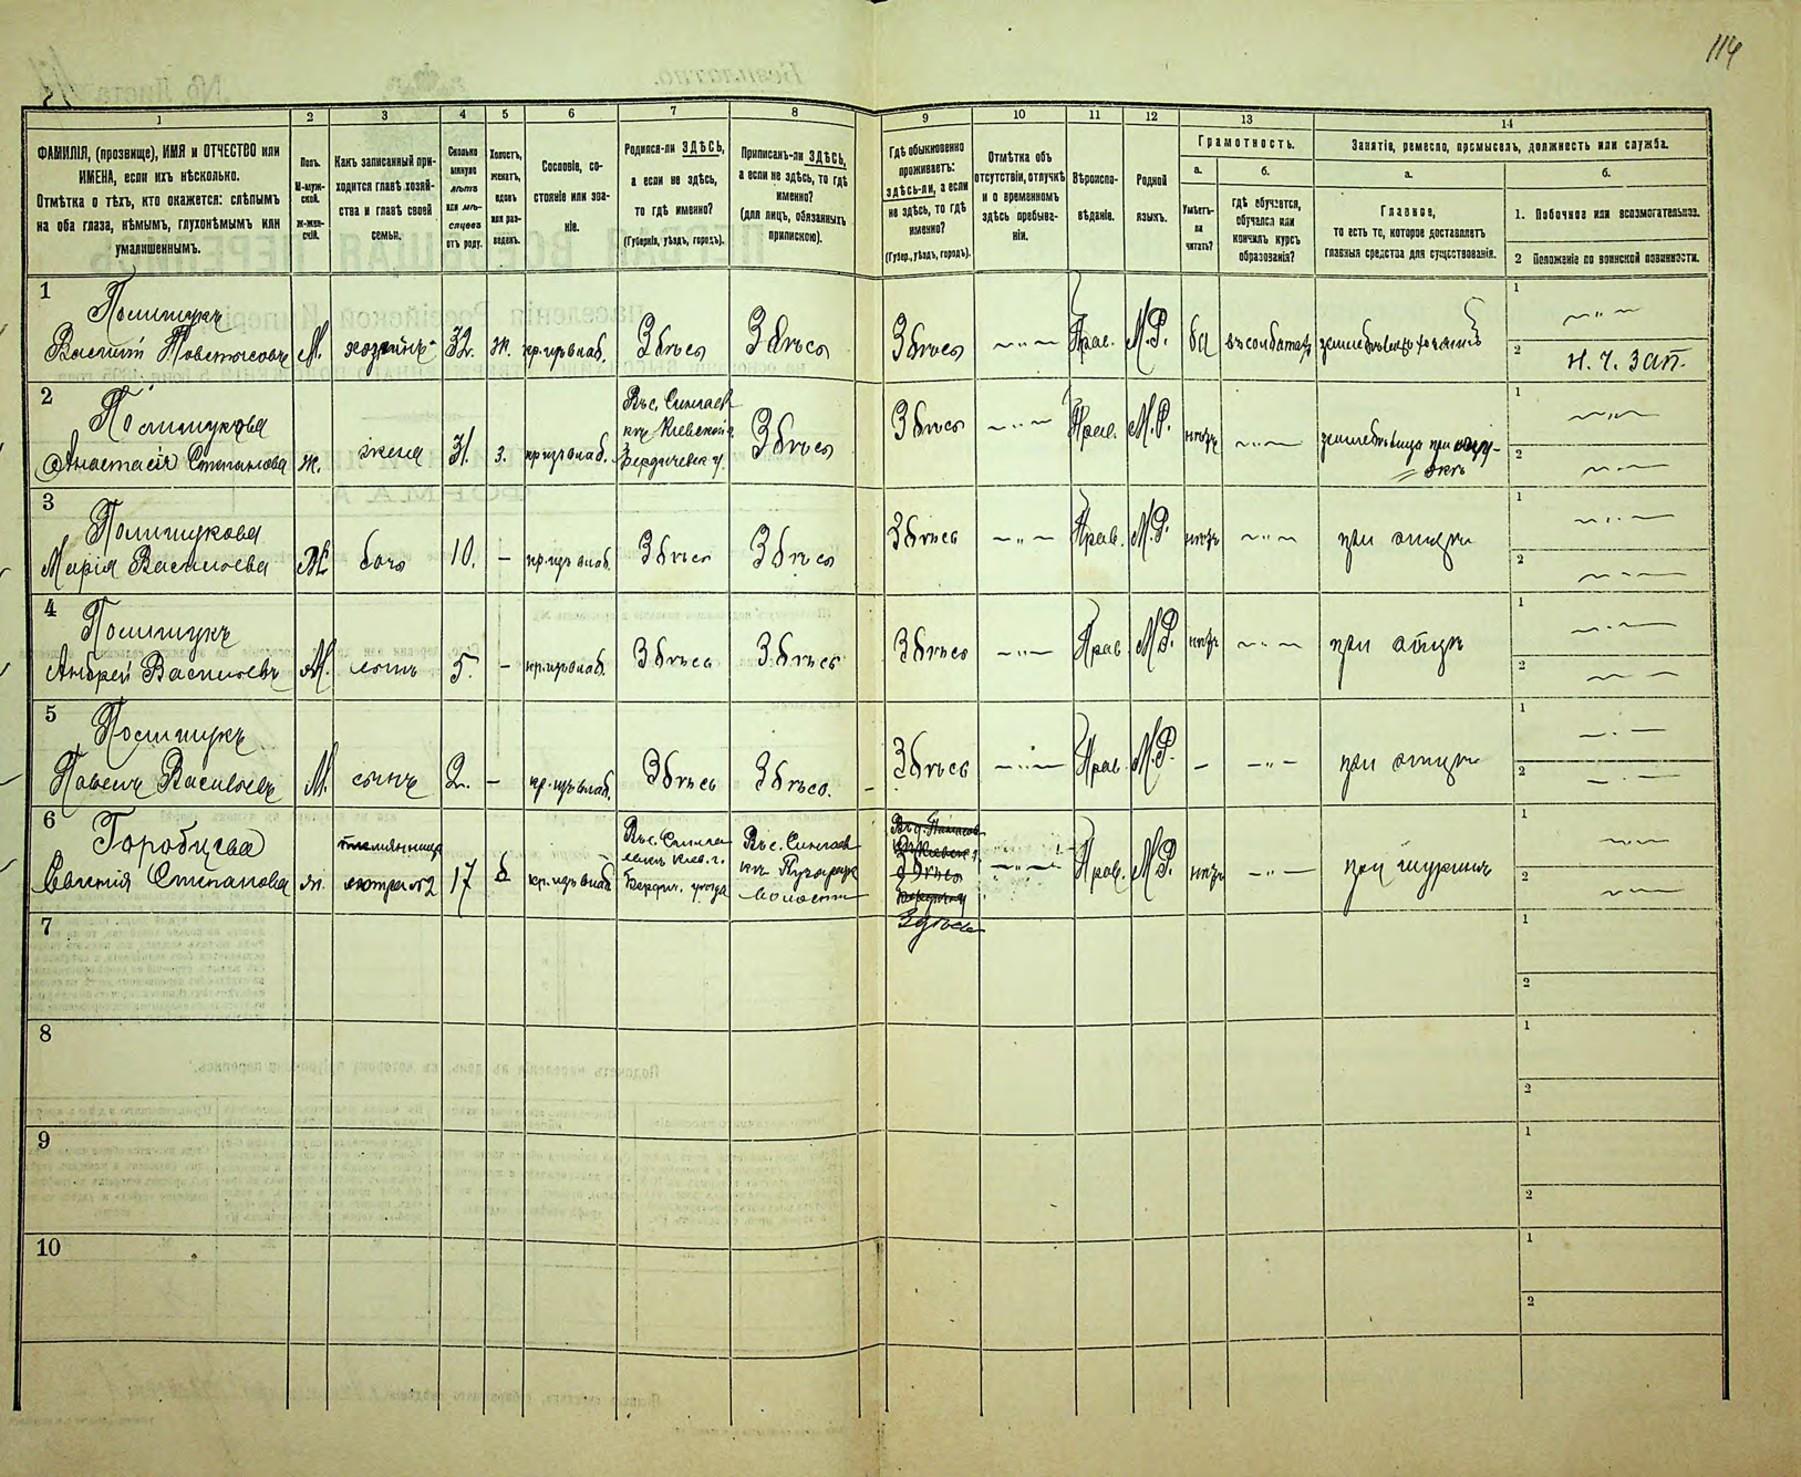 114
1
2
3
4
5
6
7
8
9
10
11
12
13
14
ФАМИЛІЯ, (прозвище), ИМЯ и ОТЧЕСТВО или
ИМЕНА, если ихъ нѣсколько.
Отмѣтка о тѣхъ, кто окажется: слѣпымъ
на оба глаза, нѣмымъ, глухонѣмымъ или
умалишеннымъ.
Полъ.
М-муж-
ской.
ж-жен-
скій.
Какъ записанный при-
ходится главѣ хозяй-
ства и главѣ своей
семьи.
Сколько
минуло
лѣтъ
или мѣ-
сяцевъ
отъ роду.
Холостъ,
женатъ,
вдовъ
или раз-
веденъ.
Сословіе, со-
стояніе или зва-
ніе.
Родился-ли ЗДѢСЬ,
а если не здѣсь,
то гдѣ именно?
(Губернія, уѣздъ, городъ).
Приписанъ-ли ЗДѢСЬ,
а если не здѣсь, то гдѣ
именно?
(для лицъ, обязанныхъ
припискою).
Гдѣ обыкновенно
проживаетъ:
здѣсь-ли, а если
не здѣсь, то гдѣ
именно?
(Губер., уѣздъ, городъ).
Отмѣтка объ
отсутствіи, отлучкѣ
и о временномъ
здѣсь пребыва-
ніи.
Вѣроиспо-
вѣданіе.
Родной
языкъ.
Грамотность.
а.
Умѣетъ-
ли
читать?
б.
гдѣ обучается,
обучался или
кончилъ курсъ
образованія?
Занятіе, ремесло, промыселъ, должность или служба.
а.
Главное,
то есть то, которое доставляетъ
главныя средства для существованія.
б.
1. Побочное или вспомогательное.
2 Положеніе по воинской повинности.
1
Полищукъ
Василій
М.
хозяинъ
32.
ж.
кр. изъ влад.
Здѣсь
Здѣсь
Здѣсь
Прав.
М.Р.
да
въ солдатахъ
1
2 Н. ч. зап.
2
Полищукова
Анастасія Степанова
ж.
жена
31.
з.
кр. изъ влад.
Въ с.
Кіевской г.
Бердичевск у.
Здѣсь
Здѣсь
Прав.
М.Р.
нѣтъ
1
2
3
Полищукова
Марія Васильева
Ж
дочь
10.
-
кр. изъ влад.
Здѣсь
Здѣсь
Здѣсь
Прав.
М.Р.
нѣтъ
при отцѣ
1
2
4
Полищукъ
Андрей Васильевъ
М.
сынъ
5.
-
кр. изъ влад.
Здѣсь
Здѣсь
Здѣсь
Прав
М.Р.
нѣтъ
при отцѣ
1
2
5
Полищукъ
Павелъ Васильевъ
М.
сынъ
2.
-
кр. изъ влад.
Здѣсь
Здѣсь.
Здѣсь
Прав.
М.Р.
-
при отцѣ
1
2
6
Горобцева
Евгенія Степанова
ж.
племянница
сестра №2
17
д
кр. изъ влад
Въ с.
Кіев. г.
Бердич. уѣзда
Въ с.
волости
Здѣсь
Здѣсь
Прав.
М.Р.
нѣтъ
при шуринѣ
1
2
7
1
2
8
1
2
9
1
2
10
1
2